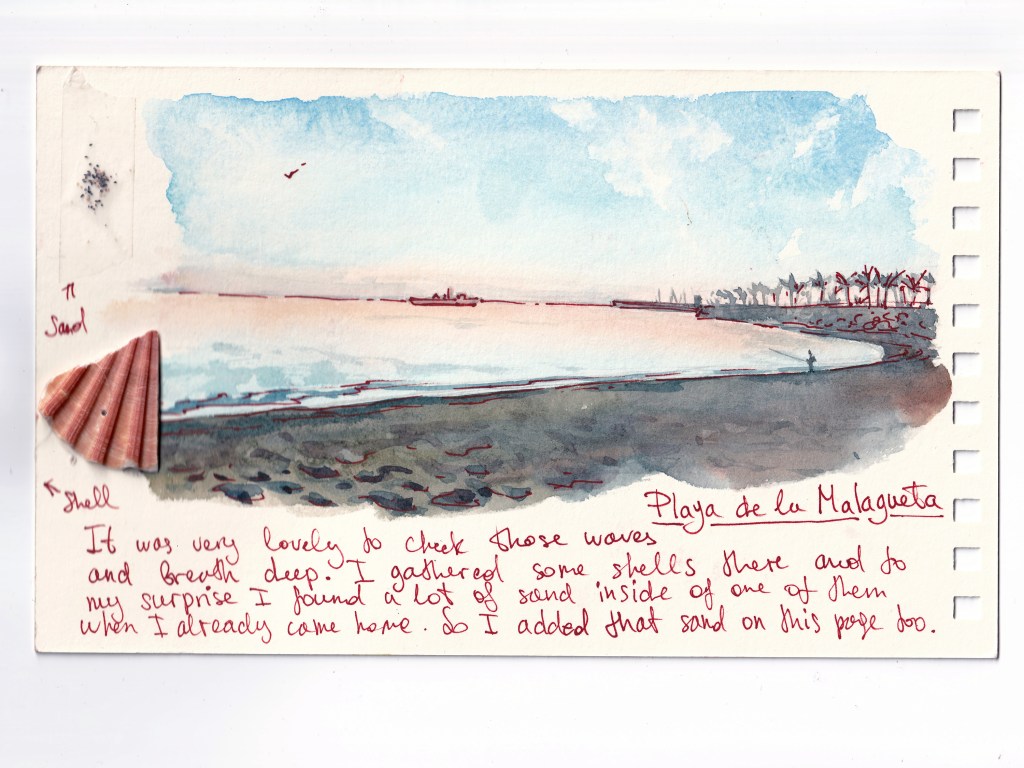 Sand
Shell
Playa de la Malagueta
It was very lovely to check those waves
and breath deep. I gathered some shells there and to
my surprise I found a lot of sand inside of one of them
when I already come home. So I added that sand on this page too.